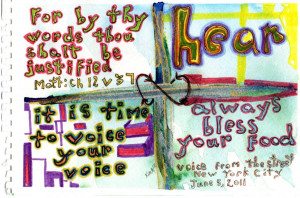 For by thy
words thou
shalt be
justified
Matt: ch 12 v 37
hear
it is time
to voice
your
voice
always
bless
your food
voice from the street
New York City
June 5, 2011